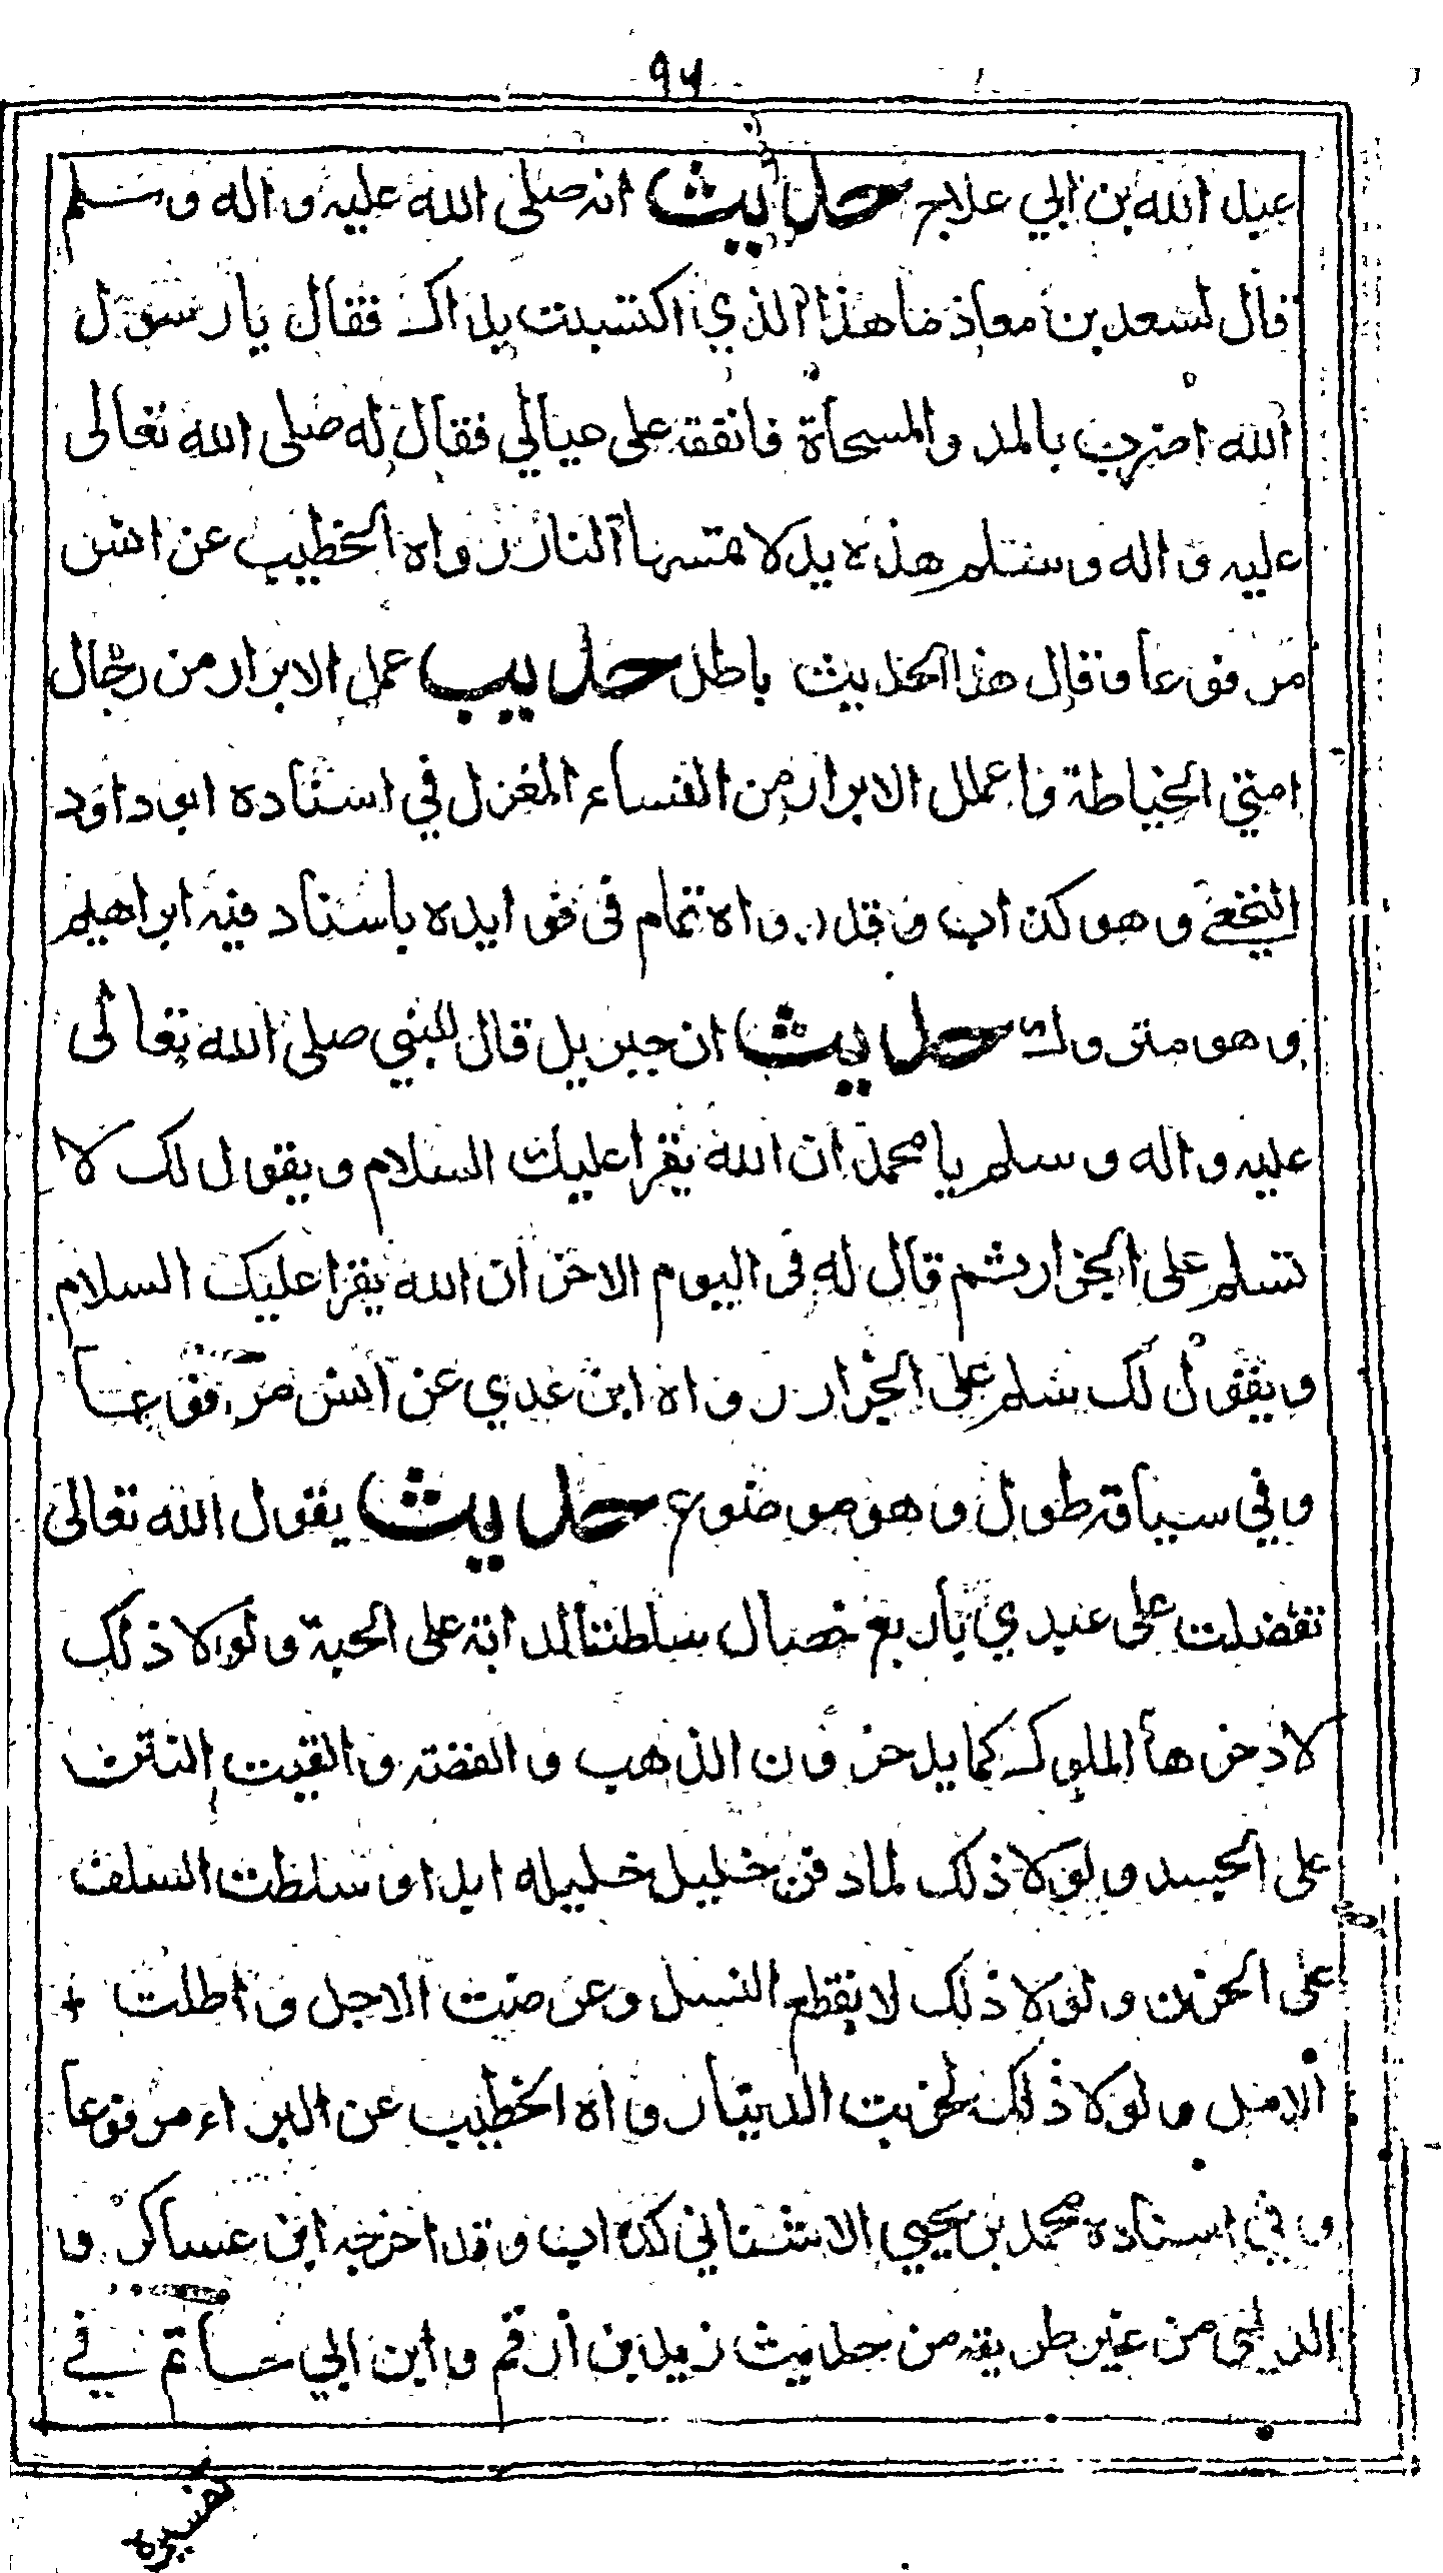 ٩٧
عبد الله بن ابي علاج حديث انه صلى الله عليه واله وسلم
قال لسعد بن معاذ ما هذا الذي اكتسبت يداك فقال يا رسول
الله اضرب بالمد والمسحاة فانفقه على عيالي فقال له صلى الله تعالى
عليه واله وسلم هذه يد لا تمسها النار رواه الخطيب عن انس
مرفوعا وقال هذا الحديث باطل حديث عمل الابرار من رجال
امتي الخياطة واعمال الابرار من النساء المغزل في اسناده ابو داود
النخعي وهو كذاب وقد رواه تمام في فوايده باسناد فيه ابراهيم
وهو متروك حديث ان جبريل قال للنبي صلى الله تعالى
عليه واله وسلم يا محمد ان الله يقرا عليك السلام ويقول لك لا
تسلم على الجزار ثم قال له في اليوم الاخر ان الله يقرا عليك السلام
ويقول لك سلم على الجزار رواه ابن عدي عن انس مرفوعا
وفي سياقه طول وهو موضوع حديث يقول الله تعالى
تفضلت على عبدي باربع خصال سلطت الدابة على الحبة ولولا ذلك
لادخرها الملوك كما يدخرون الذهب والفضة والقيت النتن
على الجسد ولولا ذلك لما دفن خليل خليله ابدا وسلطت السلف
على الحزن ولولا ذلك لانقطع النسل وعرضت الاجل واطلت +
الامل ولولا ذلك لخربت الدنيا رواه الخطيب عن البراء مرفوعا
وفي اسناده محمد بن يحيي الاشناني كذاب وقد اخرجه ابن عساكر و
الديلمي من غير طريقه من حديث زيد بن ارقم وابن ابي حاتم في
تفسيره